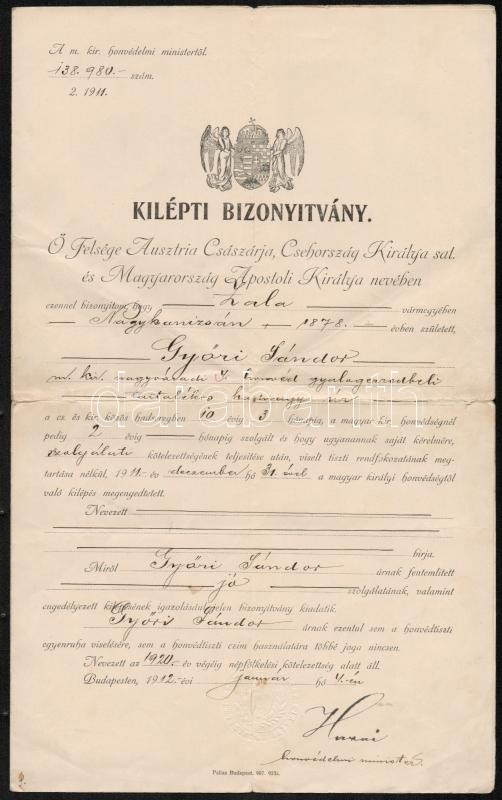 A m. kir. honvédelmi ministertől.
138.980.- szám.
2. 1911.
KILÉPTI BIZONYITVÁNY.
Ő Felsége Ausztria Császárja, Csehország Királya sat.
és Magyarország Apostoli Királya nevében
ezennel bizonyitom, hogy Zala vármegyében
Nagykanizsán 1878 évben született,
Győri Sándor
m. kir. nagyváradi 4. honvéd gyalogezredbeli
tartalékos hadnagy úr
a cs. és kir. közös hadseregben 10 évig 3 hónapig, a magyar kir. honvédségnél
pedig 2 évig hónapig szolgált és hogy ugyanannak saját kérelmére,
szolgálati kötelezettségének teljesitése után, viselt tiszti rendfokozatának meg-
tartása nélkül, 1911 év december hó 31.ével a magyar királyi honvédségtől
való kilépés megengedtetett.
Nevezett
birja.
Miről Győri Sándor úrnak fentemlitett
jó szolgálatának, valamint
engedélyezett kilépésének igazolásául jelen bizonyitvány kiadatik.
Győri Sándor úrnak ezentul sem a honvédtiszti
egyenruha viselésére, sem a honvédtiszti czim használatára többé joga nincsen.
Nevezett az 1920.- év végéig népfölkelési kötelezettség alatt áll.
Budapesten, 1912. évi január hó 4.-én
Hazai
honvédelmi minister.
Pallas Budapest.
darabanth